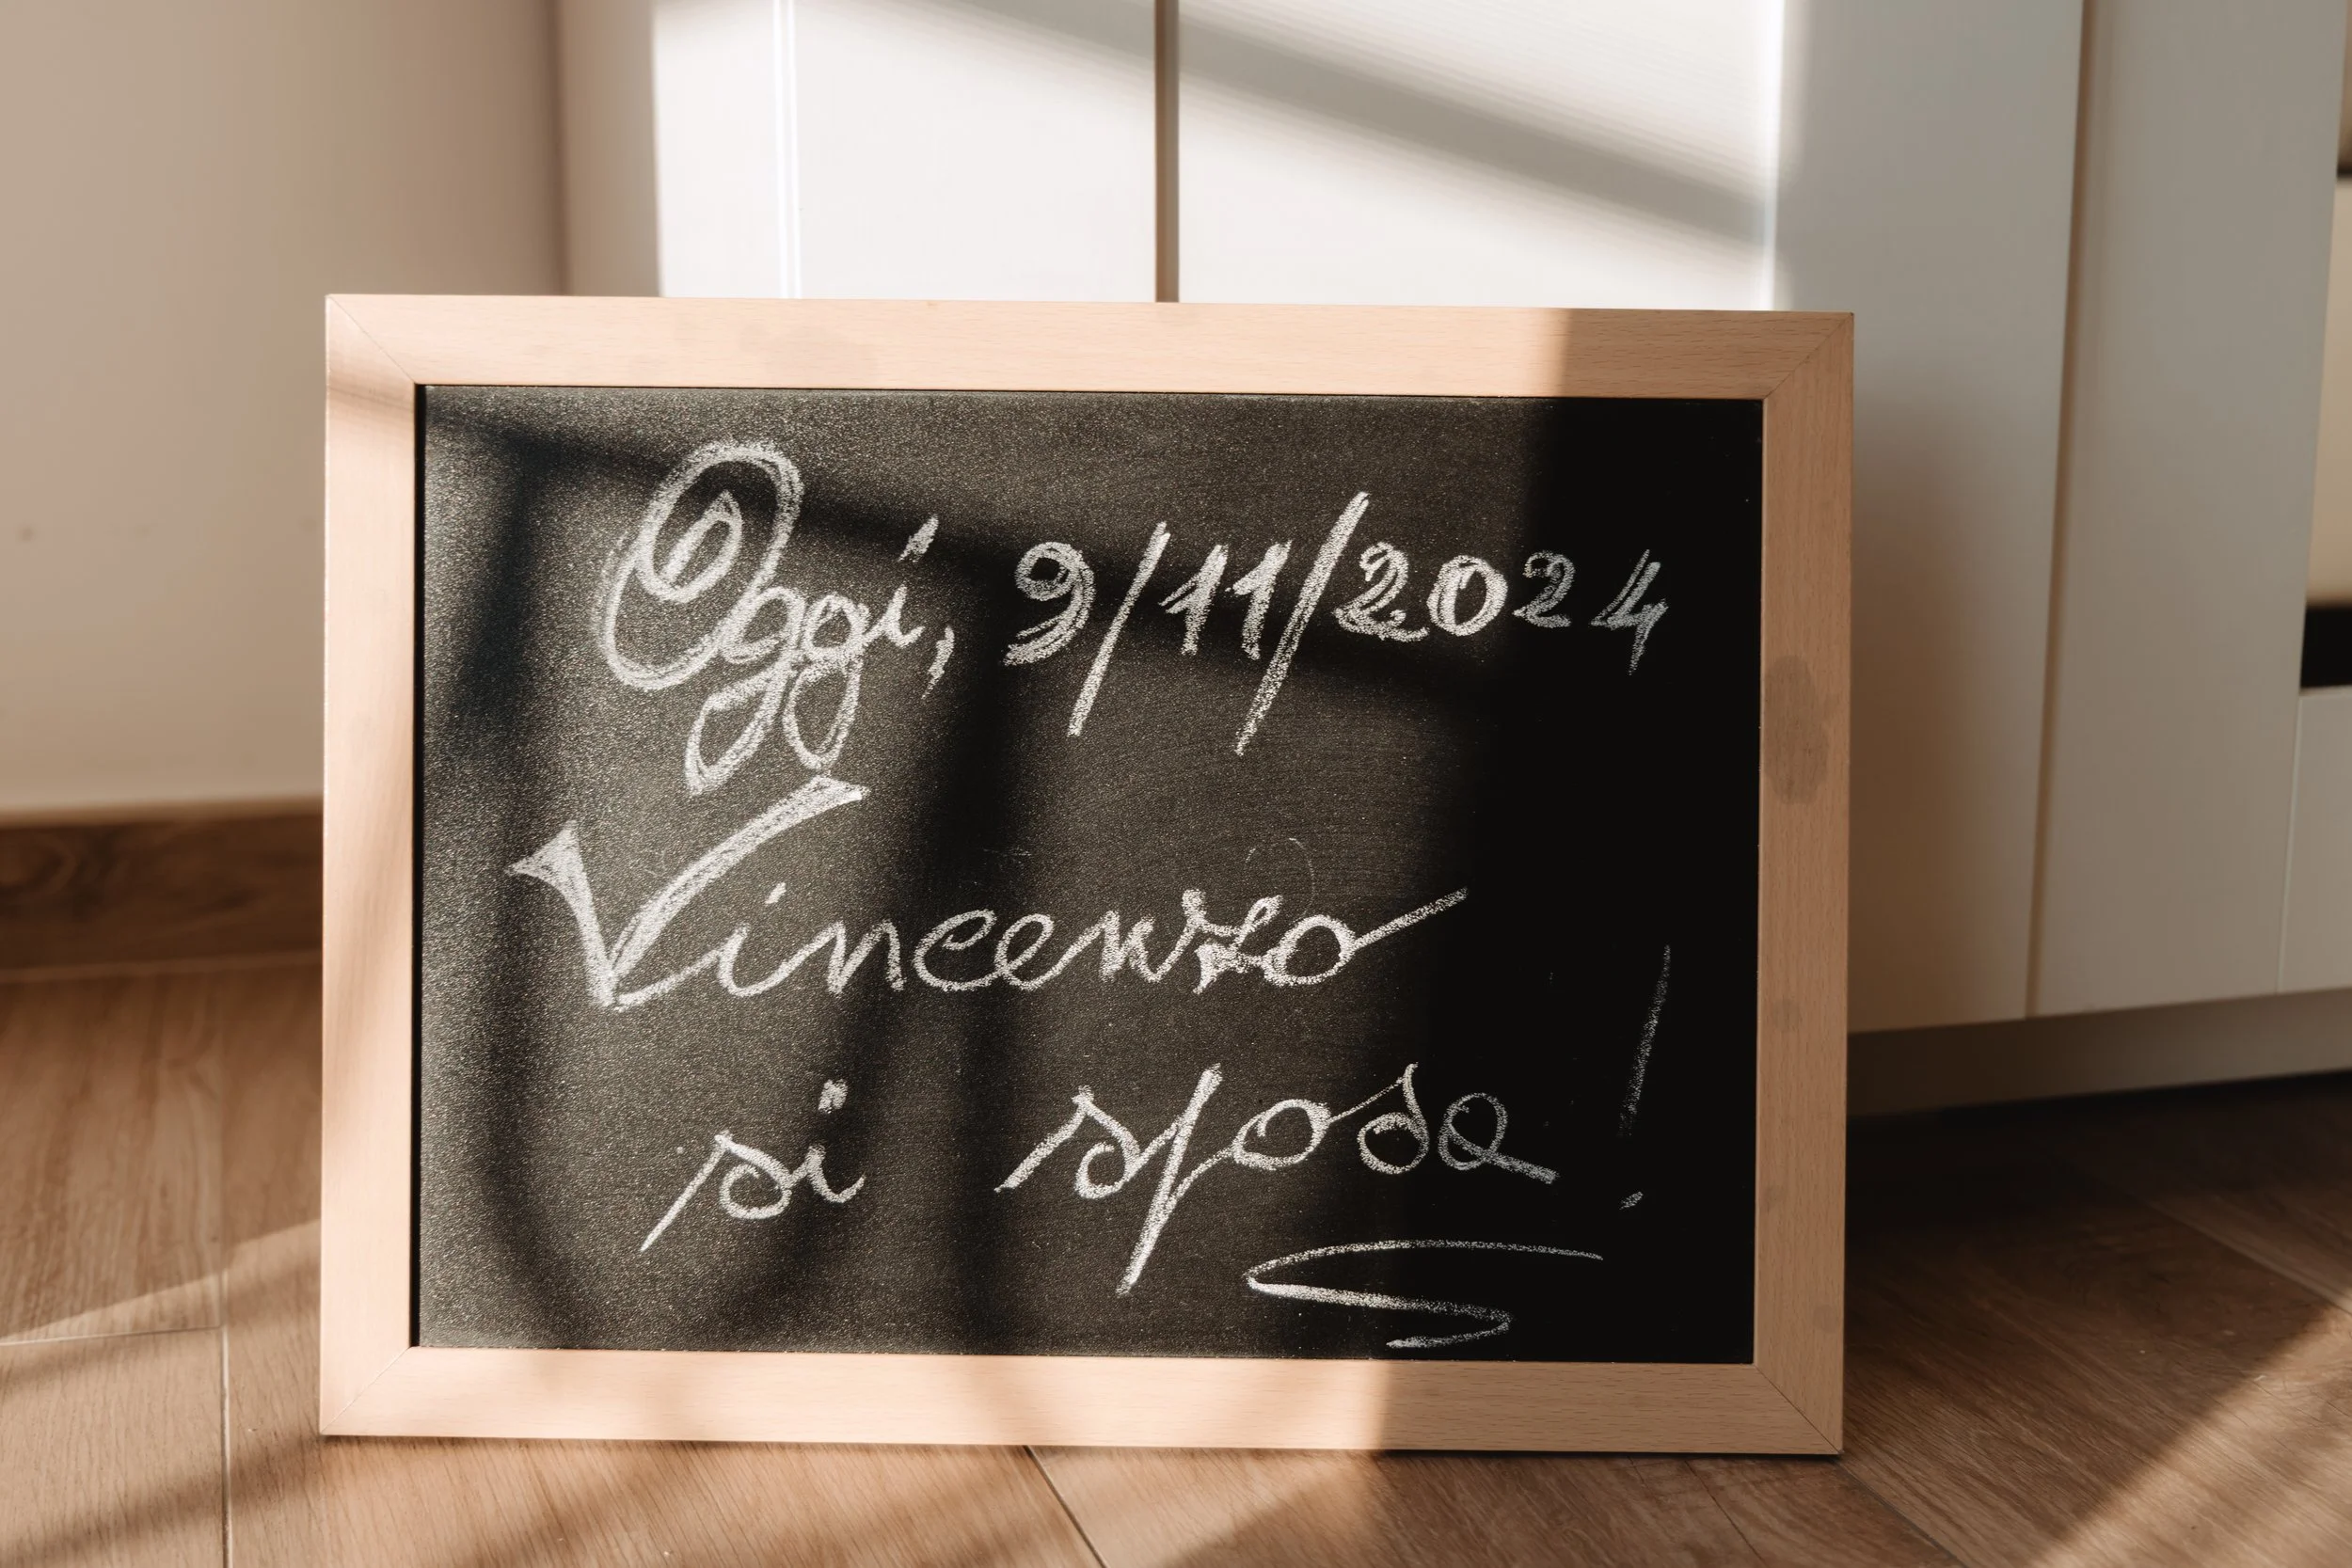 Oggi, 9/11/2024
Vincenzo
si sposa!